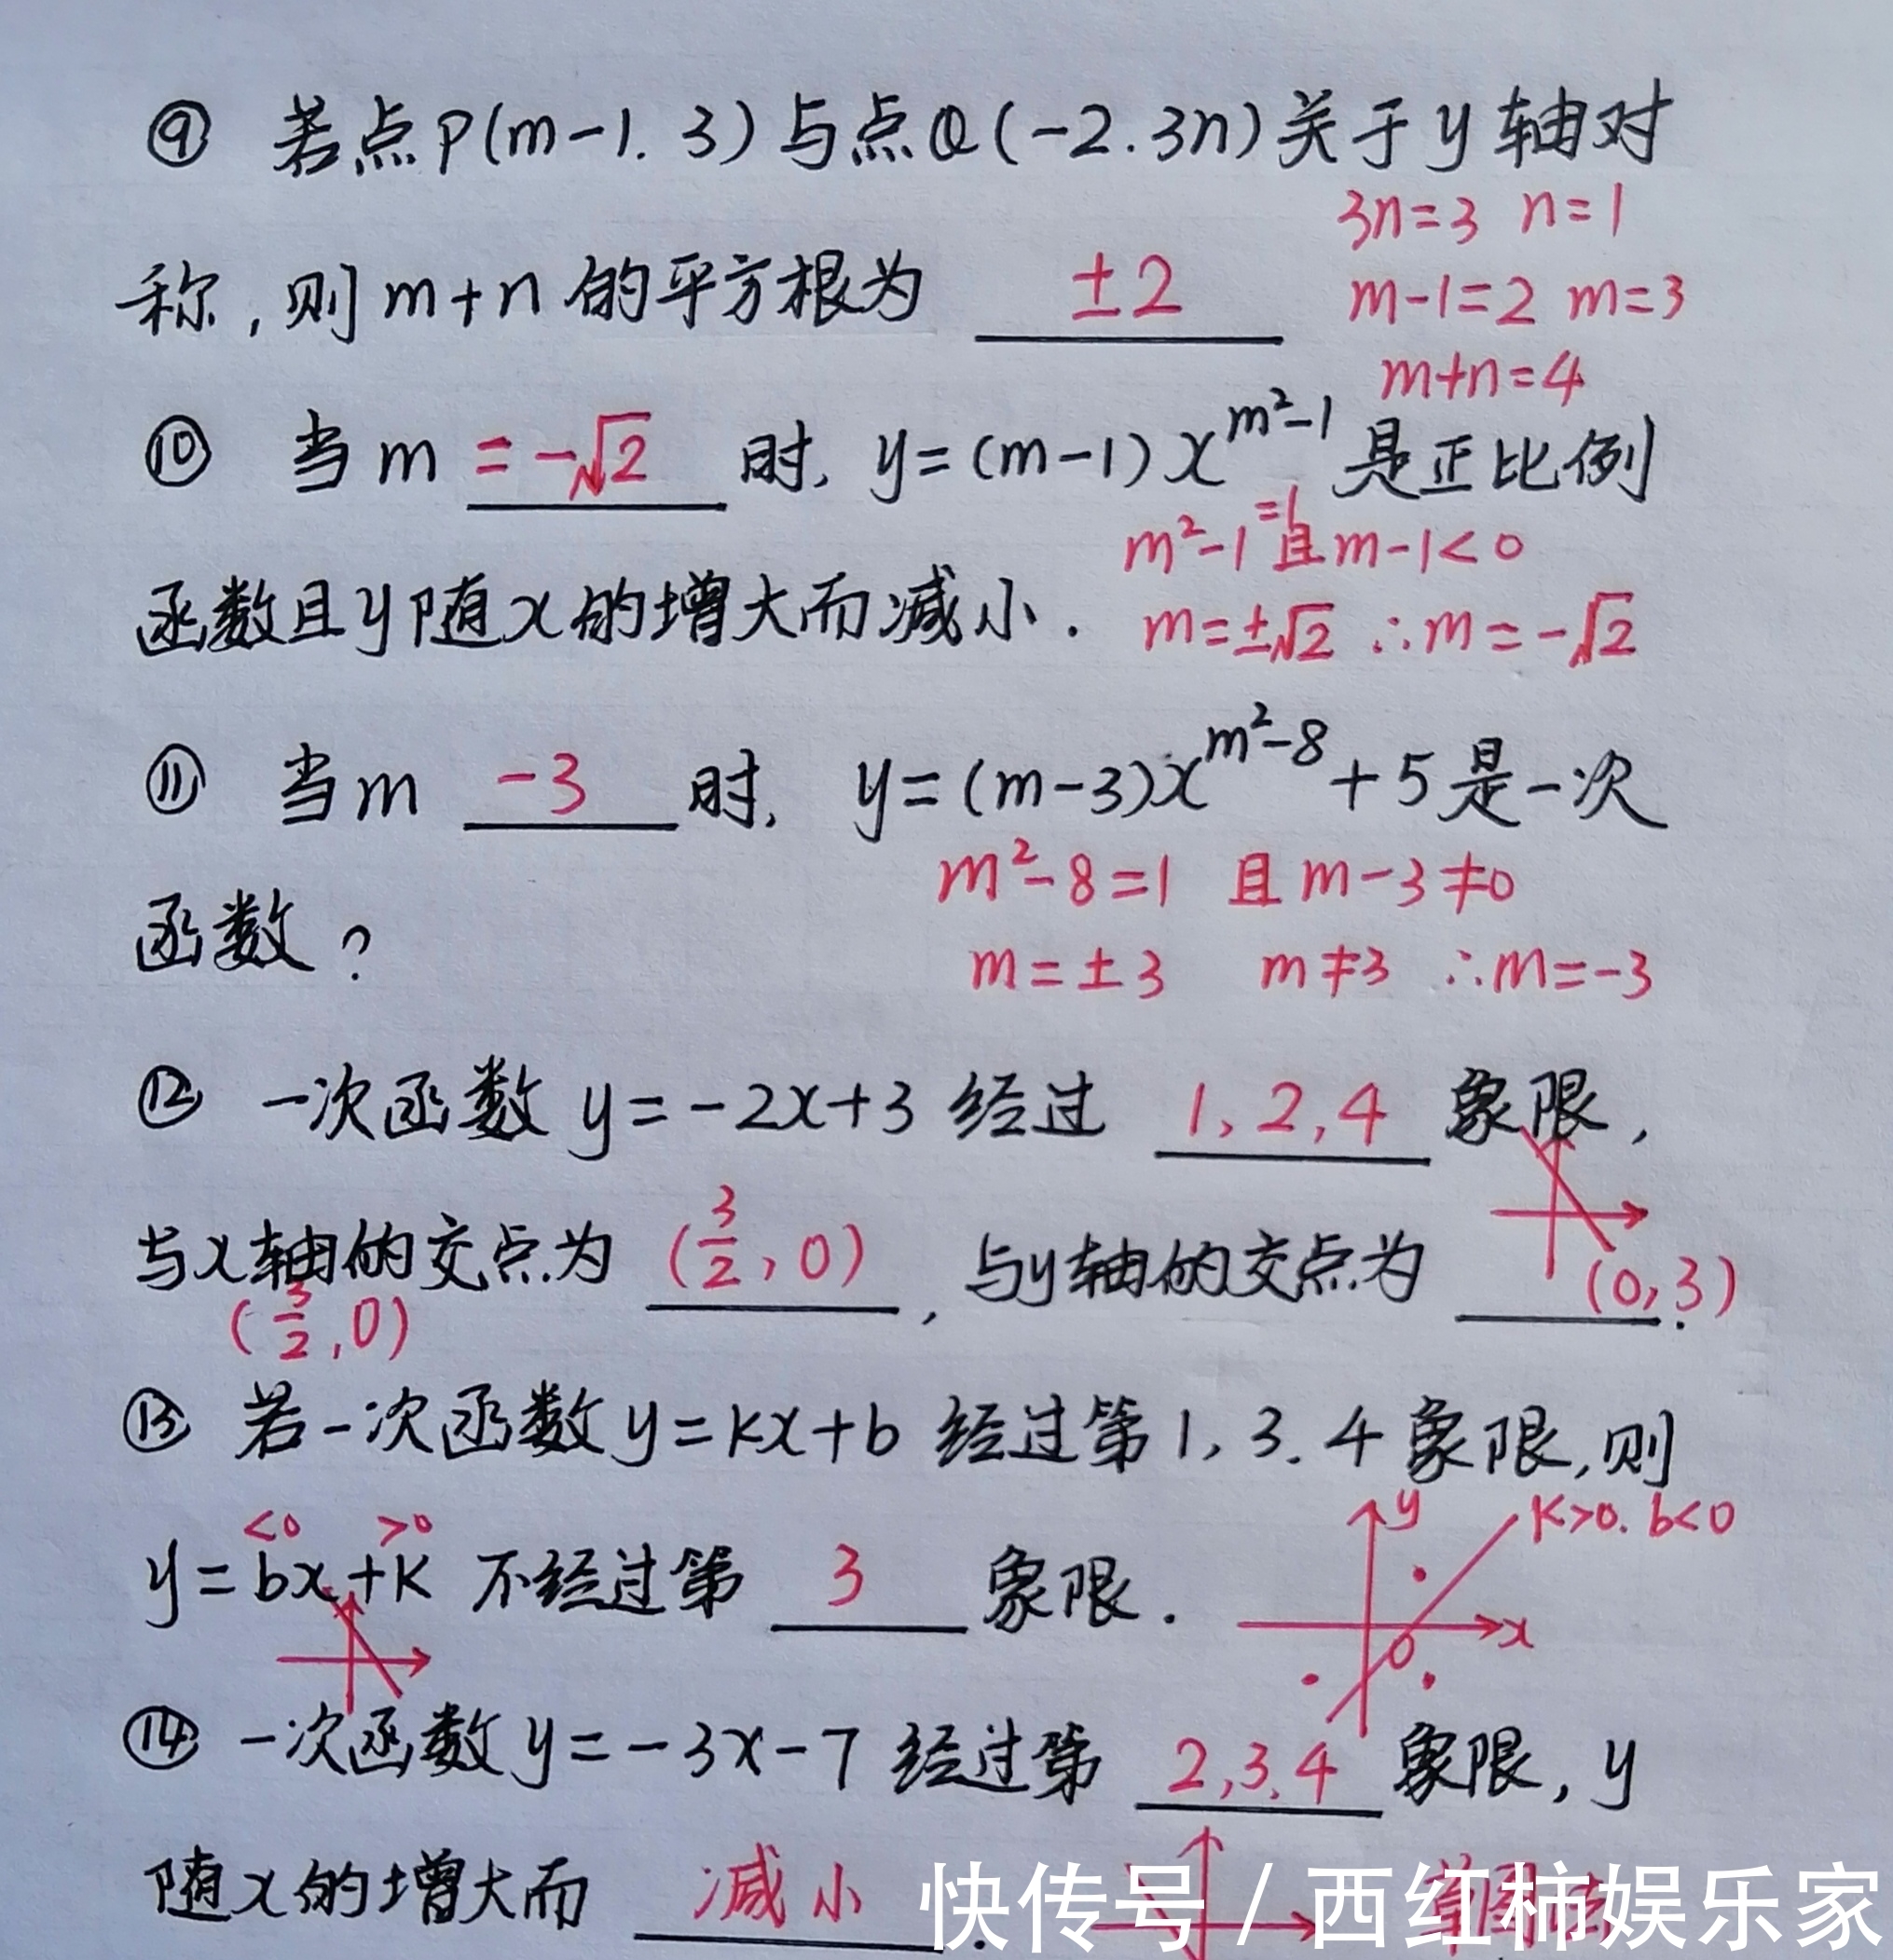 ⑨ 若点P(m-1.3)与点Q(-2.3n)关于y轴对
3n=3 n=1
称,则m+n的平方根为 ±2
m-1=2 m=3
m+n=4
⑩ 当m =-√2 时, y=(m-1)x^{m²-1} 是正比例
m²-1=1且m-1<0
函数且y随x的增大而减小.
m=±√2 ∴m=-√2
⑪ 当m -3 时, y=(m-3)x^{m²-8}+5是一次
m²-8=1 且m-3≠0
函数?
m=±3 m≠3 ∴m=-3
⑫ 一次函数y=-2x+3经过 1,2,4 象限,
与x轴的交点为 (3/2,0), 与y轴的交点为 (0,3).
(3/2,0)
⑬ 若一次函数y=kx+b经过第1,3.4象限,则
<0 >0
y K>0. b<0
y=bx+k 不经过第 3 象限.
x
0
⑭ 一次函数y=-3x-7经过第 2,3.4 象限, y
随x的增大而 减小.
快传号/西红柿娱乐家